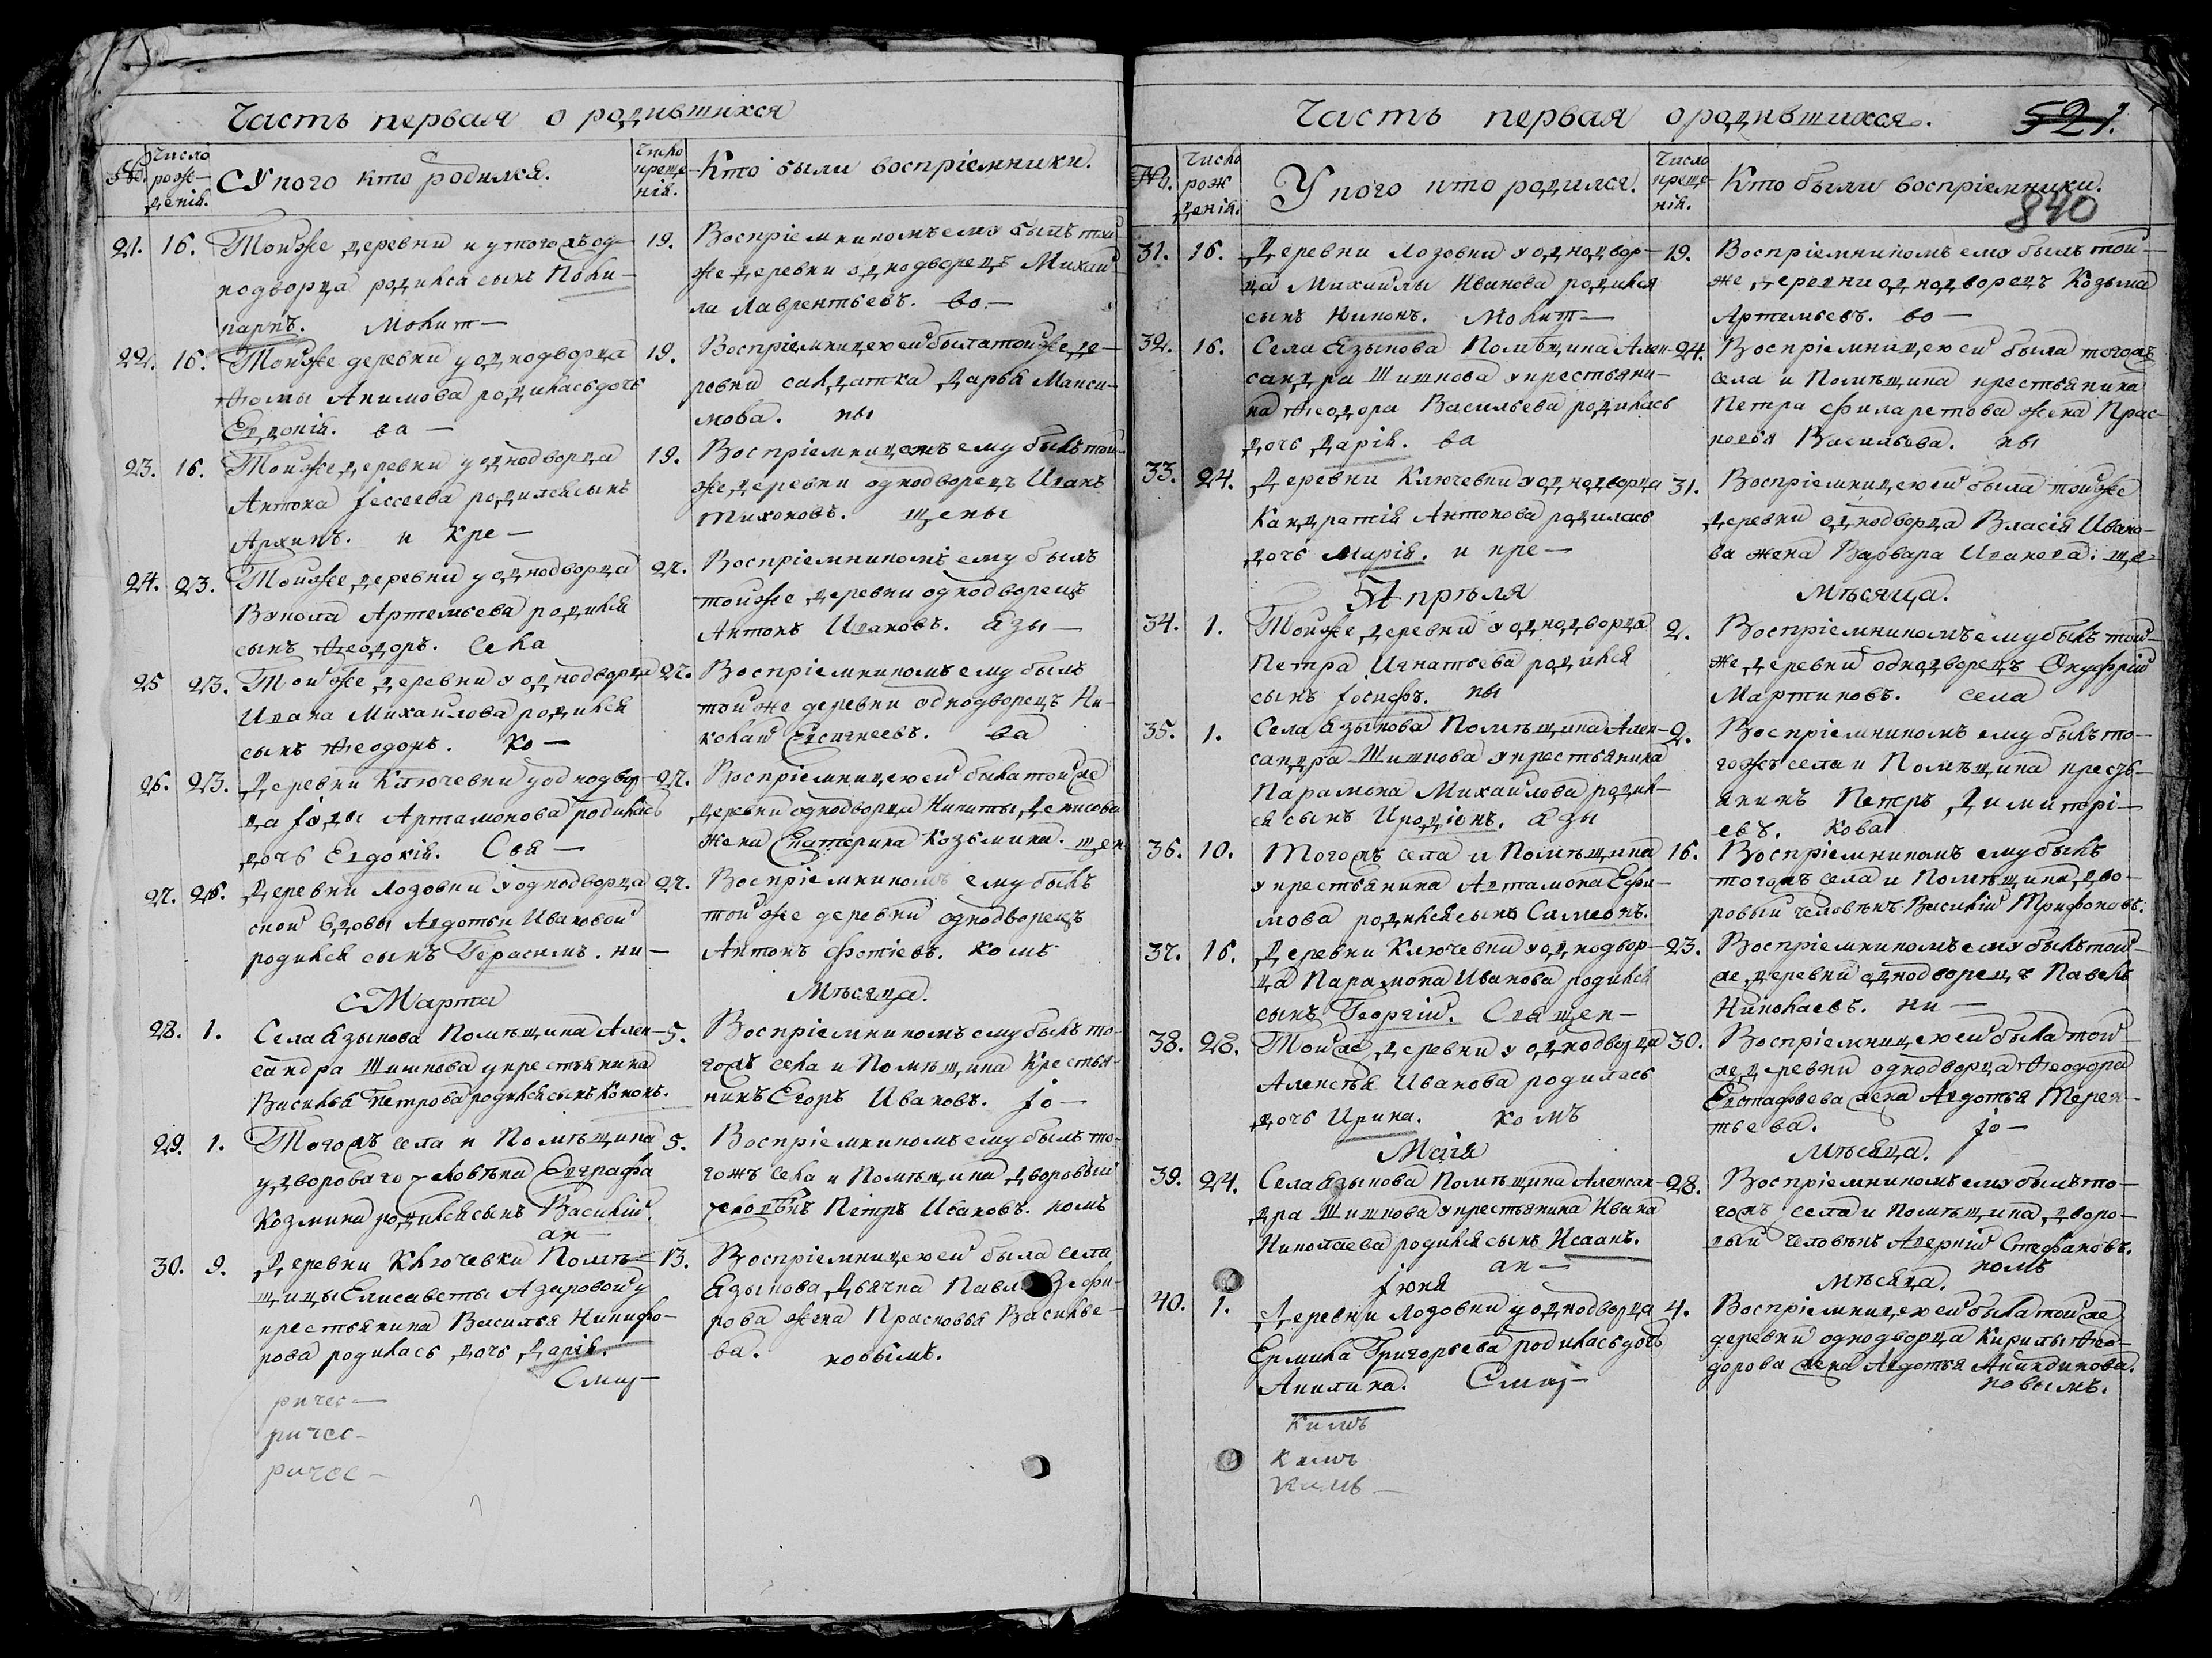 Часть первая о родившихся
№. Число рож-денія.
У кого кто родился.
Число креще-нія.
Кто были воспріемники.
21. 16. Тойже деревни и у тогожъ од-
нодворца родился сынъ Поли-
карпъ. Молит-
19. Воспріемникомъ ему былъ той
же деревни однодворецъ Михай
ла Лаврентьевъ. во-
22. 16. Тойже деревни у однодворца
Ѳомы Акимова родилась дочь
Евдокія. ва-
19. Воспріемницею ей была тойже де-
ревни салдатка Дарья Макси-
мова. ны
23. 16. Тойже деревни у однодворца
Антона Іессеева родился сынъ
Архипъ. и кре-
19. Воспріемникомъ ему былъ той-
же деревни однодворецъ Иванъ
Тихоновъ. щены
24. 23. Тойже деревни у однодворца
Вукола Артемьева родился
сынъ Ѳеодоръ. Села
27. Воспріемникомъ ему былъ
тойже деревни однодворецъ
Антонъ Ивановъ. Язы-
25 23. Тойже деревни у однодворца
Ивана Михайлова родился
сынъ Ѳеодоръ. Ко-
27. Воспріемникомъ ему былъ
тойже деревни однодворецъ Ни-
колай Евсигнеевъ. ва
26. 23. Деревни Ключевки у однодвор-
ца Іуды Артамонова родилась
дочь Евдокія. Свя-
27. Воспріемницею ей была тойже
деревни однодворца Никиты Денисова
жена Екатерина Козьмина. щен
27. 26. Деревни Лозовки у однодворче
ской вдовы Авдотьи Ивановой
родился сынъ Герасимъ. ни-
27. Воспріемникомъ ему былъ
тойже деревни однодворецъ
Антонъ Фотіевъ. комъ
Марта
Мѣсяца.
28. 1. Села Языкова Помѣщика Алек-
сандра Шишкова у крестьянина
Василья Петрова родился сынъ Кононъ.
5. Воспріемникомъ ему былъ то-
гожъ села и Помѣщика Крестья-
нинъ Егоръ Ивановъ. Іо-
29. 1. Тогожъ села и Помѣщика
у двороваго человѣка Евграфа
Козмина родился сынъ Василій.
ан-
5. Воспріемникомъ ему былъ то-
гожъ села и Помѣщика дворовый
человѣкъ Петръ Ивановъ. комъ
30. 9. Деревни Ключевки Помѣ-
щицы Елисаветы Азаровой у
крестьянина Василья Никифо-
рова родилась дочь Дарія.
Смир-
13. Воспріемницею ей была села
Языкова Дьячка Павла
рова жена Прасковья Василье-
ва. новымъ.
ричес-
ричес-
ричес-
Часть первая о родившихся.
521.
№. Число рож денія.
У кого кто родился.
Число креще-нія.
Кто были воспріемники.
840
31. 16. Деревни Лозовки у однодвор-
ца Михайлы Иванова родился
сынъ Никонъ. Молит-
19. Воспріемникомъ ему былъ той-
же деревни однодворецъ Козьма
Артемьевъ. во-
32. 16. Села Языкова Помѣщика Алек-
сандра Шишкова у крестьяни-
на Ѳеодора Васильева родилась
дочь Дарія. ва
24. Воспріемницею ей была тогожъ
села и Помѣщика крестьянина
Петра Филаретова жена Прас-
ковья Васильева. ны
33. 24. Деревни Ключевки у однодворца
Кандратія Антонова родилась
дочь Марія. и кре-
31. Воспріемницею ей была тойже
деревни однодворца Власія Ивано-
ва жена Варвара Иванова. ще-
Апрѣля
Мѣсяца.
34. 1. Тойже деревни у однодворца
Петра Игнатьева родился
сынъ Іосифъ. ны
2. Воспріемникомъ ему былъ той-
же деревни однодворецъ Онуфрій
Мартиновъ. села
35. 1. Села Языкова Помѣщика Алек-
сандра Шишкова у крестьянина
Парамона Михайлова родил-
ся сынъ Иродіонъ. Язы
2. Воспріемникомъ ему былъ то-
гожъ села и Помѣщика кресть-
янинъ Петръ Димитрі-
евъ. кова
36. 10. Тогожъ села и Помѣщика
у крестьянина Артамона Ефи-
мова родился сынъ Самсонъ.
16. Воспріемникомъ ему былъ
тогожъ села и Помѣщика дво-
ровый человѣкъ Василій Трифоновъ.
37. 16. Деревни Ключевки у однодвор-
ца Парамона Иванова родился
сынъ Георгій. Священ-
23. Воспріемникомъ ему былъ той-
же деревни однодворецъ Павелъ
Николаевъ. ни-
38. 28. Тойже деревни у однодворца
Алексѣя Иванова родилась
дочь Ирина. комъ
30. Воспріемницею ей была той
же деревни однодворца Ѳеодора
Евстафьева жена Авдотья Терен-
тьева. Іо-
Маія
Мѣсяца.
39. 24. Села Языкова Помѣщика Алексан-
дра Шишкова у крестьянина Ивана
Николаева родился сынъ Исаакъ.
ан-
28. Воспріемникомъ ему былъ то-
гожъ села и Помѣщика дворо-
вый человѣкъ Аверкій Стефановъ.
комъ
Іюня
Мѣсяца.
40. 1. Деревни Лозовки у однодворца
Ермила Григорьева родилась дочь
Акилина. Смир-
4. Воспріемницею ей была тойже
деревни однодворца Кирилы Ѳео-
дорова жена Авдотья Акиндинова.
новымъ.
Кимъ
Кимъ
Кимъ-